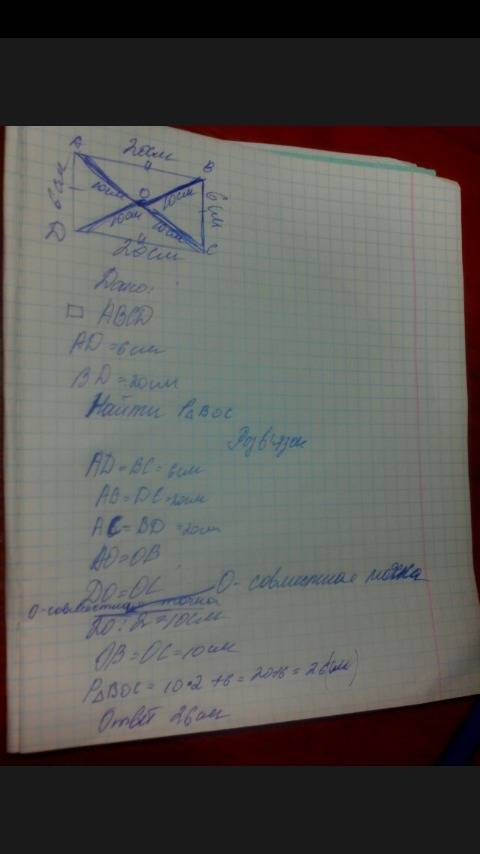 A
20см
B
6см
10см
O
10см
6см
10см
10см
D
20см
C
Дано:
□ ABCD
AD = 6см
BD = 20см
Найти P△BOC
Розв'язок
AD = BC = 6см
AB = DC = 20см
AC = BD = 20см
AO = OB
DO = OC
O - совместная точка
O - совместная точка
20 : 2 = 10см
OB = OC = 10см
P△BOC = 10·2 + 6 = 20+6 = 26(см)
Ответ 26см